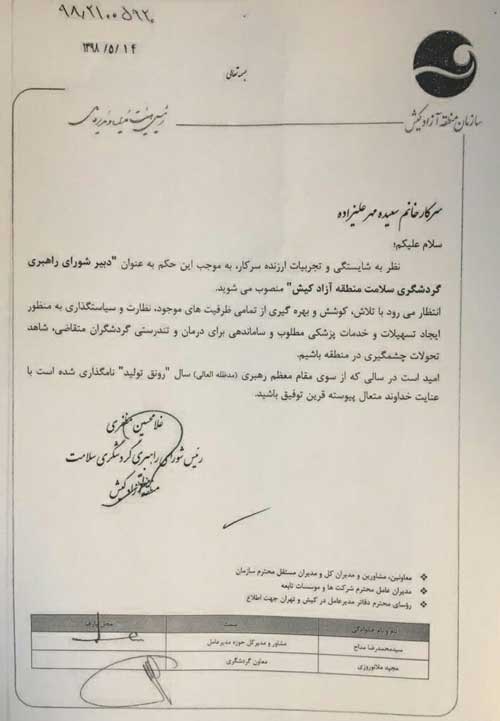 ۹۸/۲۱۰۰۵۹۲۰
۱۳۹۸/۵/۱۴
بسمه تعالی
سازمان منطقه آزاد کیش
سرکار خانم سعیده مهر علیزاده
سلام علیکم؛
نظر به شایستگی و تجربیات ارزنده سرکار، به موجب این حکم به عنوان "دبیر شورای راهبری
گردشگری سلامت منطقه آزاد کیش" منصوب می شوید.
انتظار می رود با تلاش، کوشش و بهره گیری از تمامی ظرفیت های موجود، نظارت و سیاستگذاری به منظور
ایجاد تسهیلات و خدمات پزشکی مطلوب و ساماندهی برای درمان و تندرستی گردشگران متقاضی، شاهد
تحولات چشمگیری در منطقه باشیم.
امید است در سالی که از سوی مقام معظم رهبری (مدظله العالی) سال "رونق تولید" نامگذاری شده است با
عنایت خداوند متعال پیوسته قرین توفیق باشید.
غلامحسین مظفری
رئیس شورای راهبری گردشگری سلامت
منطقه آزاد کیش
❖ معاونین، مشاورین و مدیران کل و مدیران مستقل محترم سازمان
❖ مدیران عامل محترم شرکت ها و موسسات تابعه
❖ رؤسای محترم دفاتر مدیرعامل در کیش و تهران جهت اطلاع
نام و نام خانوادگی سمت
سیدمحمدرضا مداح مشاور و مدیرکل حوزه مدیرعامل
مجید ملانوروزی معاون گردشگری